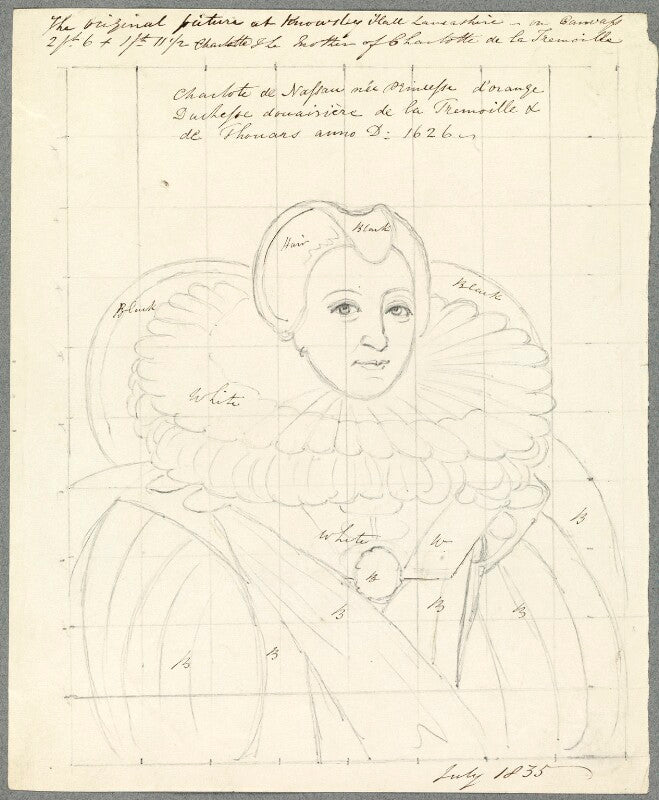 The original picture at Knowsley Hall Lancashire - on Canvass
2 ft 6 + 1 ft 11 1/2 Charlotte the Mother of Charlotte de la Tremoille
Charlote de Nassau née Princesse d'orange
Duchesse douairière de la Tremoille &
de Thouars anno D: 1626
Hair
Black
Black
Black
White
White
W
B
B
B
B
B
B
B
July 1835